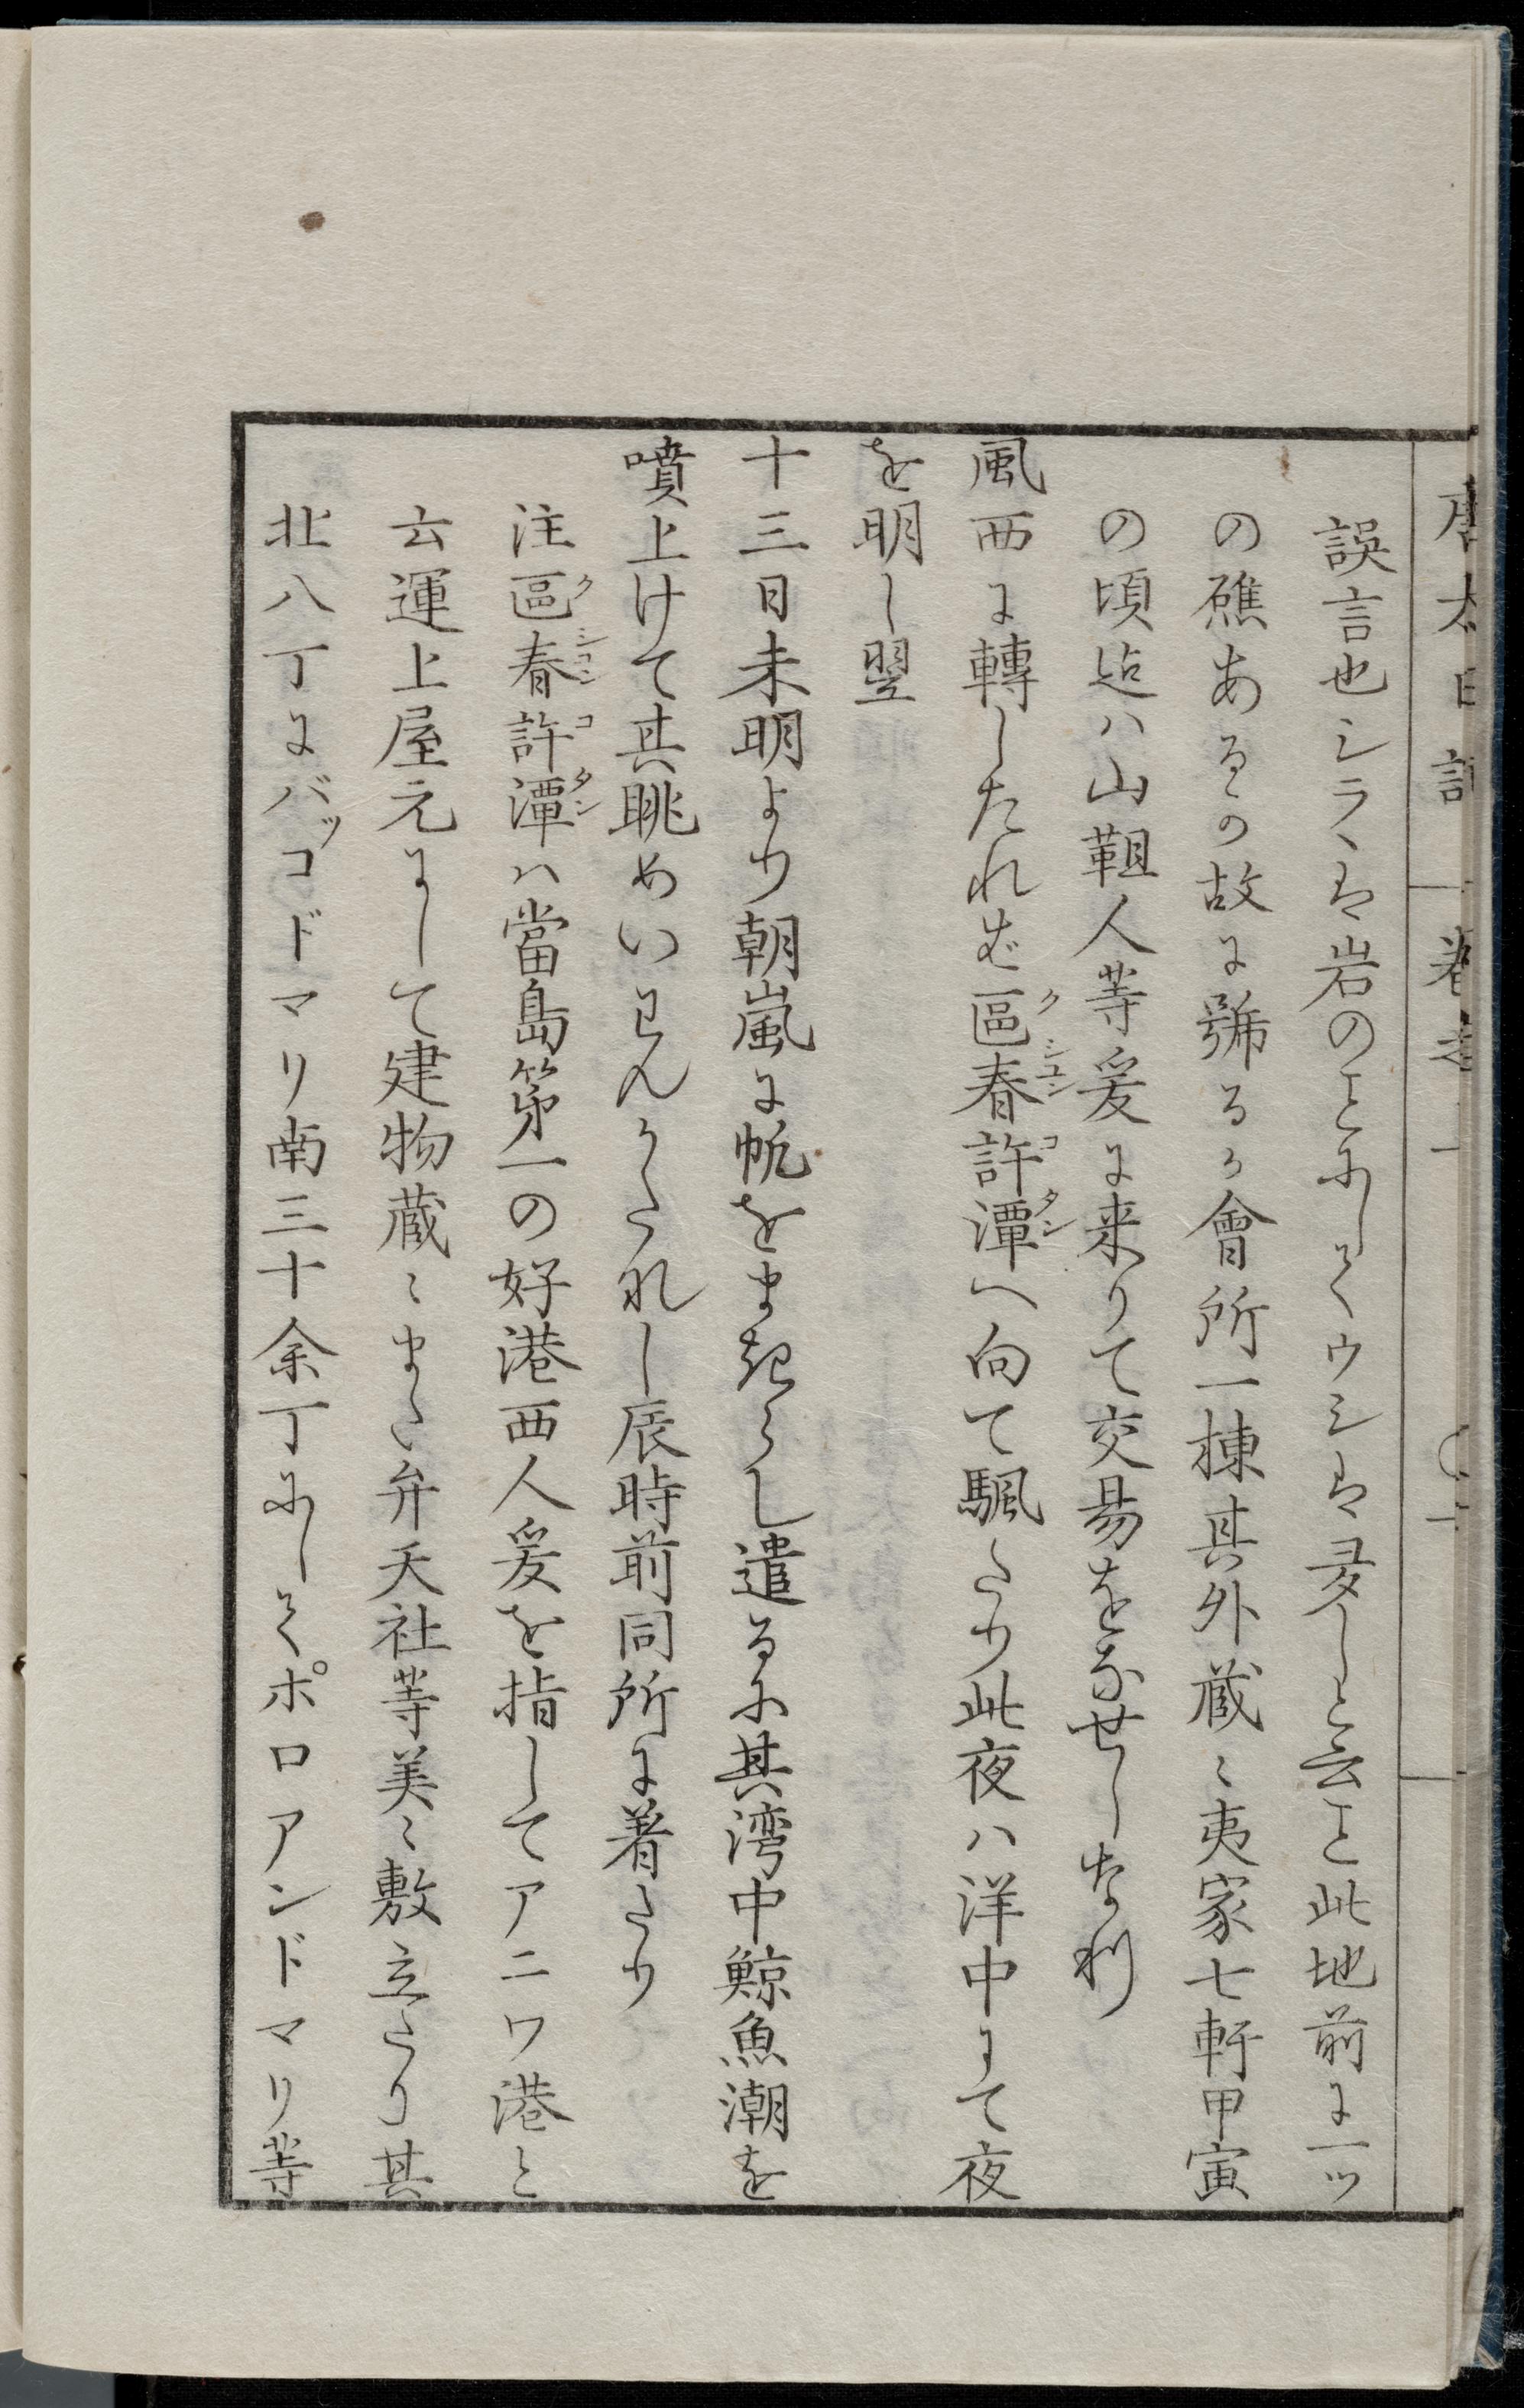 唐太日記 巻之一
誤言也シラヽは岩のことにしてウシは多しと云こと此地前に一ツ
の礁あるか故に號るか會所一棟其外蔵々夷家七軒甲寅
の頃迠ハ山靼人等爰に来りて交易をなせしなり
風西に轉したれば區春許潭へ向て颿たり此夜ハ洋中にて夜
クシユンコタン
を明し翌
十三日未明より朝嵐に帆をまきらし遣るに其湾中鯨魚潮を
噴上けて其眺めいわんかたなし辰時前同所に着たり
注區春許潭ハ當島第一の好港西人爰を指してアニワ港と
クシユンコタン
云運上屋元にして建物蔵々また弁天社等美々敷立たり其
北八丁にバッコドマリ南三十余丁にしてポロアンドマリ等